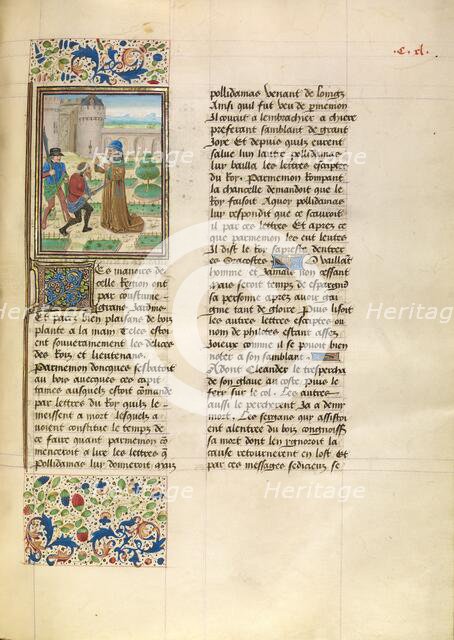 .C. xl.
Les manoirs de
celle Region ont
par coustume
grans Jardins
et parcz bien plaisans de bois
plante a la main Telles estoit
souverainement les delices
des Rois et lieutenans.
Parmenon doncques sesbatoit
au bois avecques ces capit
taines ausquelz estoit comāde
par lettres du Roy quilz le
meissent a mort lesquelz a
voient constitue le temps de
ce faire quant parmenon cō
menceroit a lire les lettres q̄
pollidamas luy donneroit
pollidamas venant de loingz
Ainsi quil fut veu de pmenon
Il courut a lembrachier a chiere
presentant samblant de grant
Joye Et depuis quilz eurent
salue lun lautre pollidamas
luy bailla les lettres escriptes
du Roy. Parmenon Rompant
la chancelle demandoit que le
Roy faisoit Aquoy pollidamas
luy respondit que ce sauroit
il par ces lettres Et apres ce
que parmenon les eut leutes
Il dist le Roy
vaillāt
homme et Jamais non cessant
Mais seroit temps de espargnier
sa personne apres avoir
time tant de gloire Puis lisoit
les autres lettres escriptes ou
nom de philotes estant assez
Joieux comme il se pouoit bien
noter a son samblant.
Adont Cleander le tresperca
de son glaive au coste Puis le
fery sur le col. Les autres
aussi le percherent Ja a demy
mort. Les sergans qui assistoit
alentree du bois congnoiss
sa mort dont Ignoroit la
cause retournerent en lost Et
par ces messages sedicieux se
Heritage
Heritage
Heritage
Heritage
Heritage
Heritage